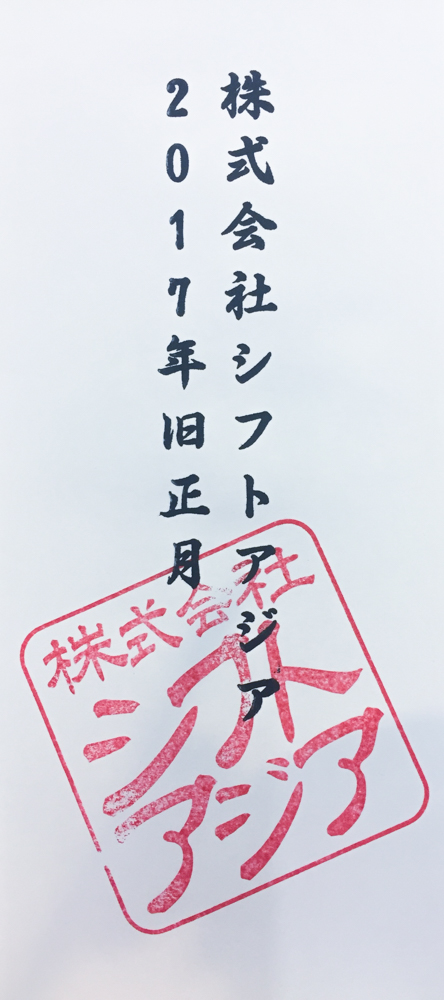 株式会社シフトアジア
2017年旧正月
株式会社
シフト
アジア